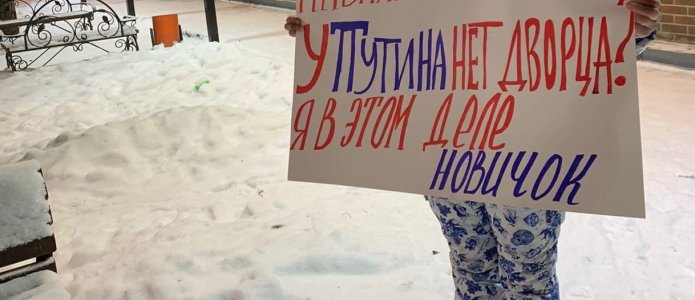 У ПУТИНА НЕТ ДВОРЦА!
Я В ЭТОМ ДЕЛЕ
НОВИЧОК